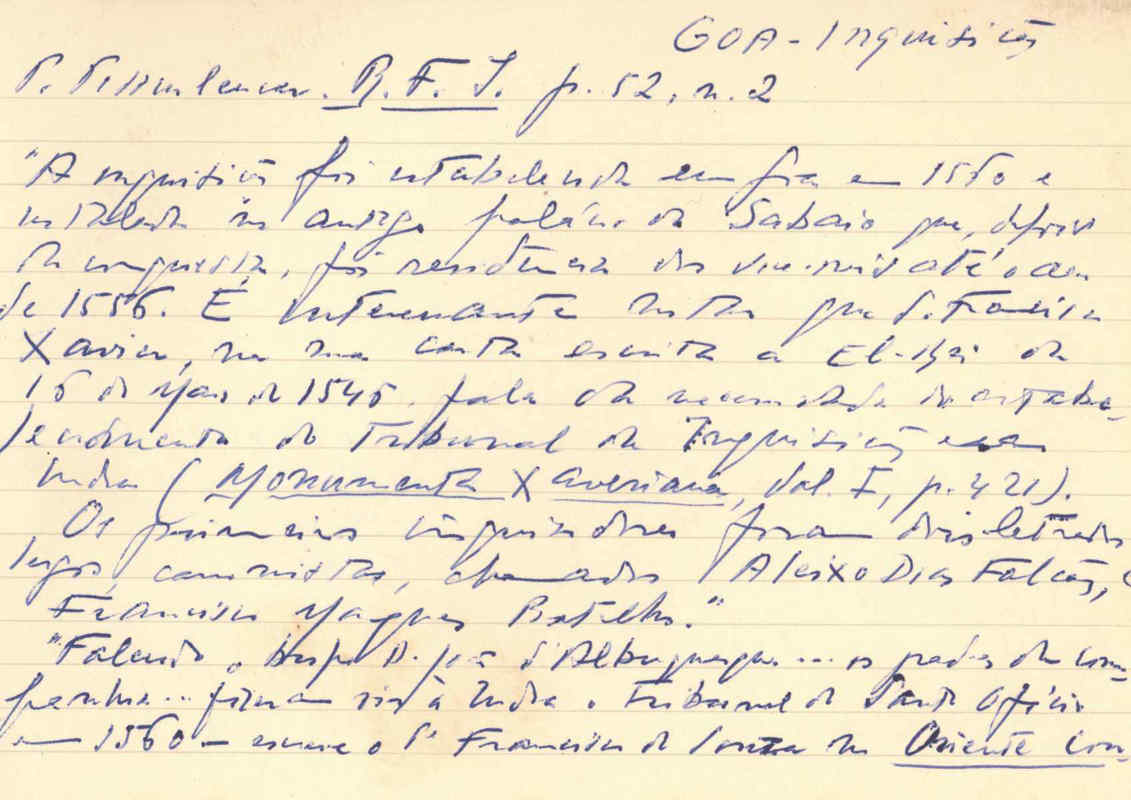 GOA - Inquisição
P. Pissurlencar. R. F. I. p. 52, n. 2
"A inquisição foi estabelecida em Goa em 1560 e
instalada no antigo palácio do Sabaio que, depois
da conquista, foi residência dos vice-reis até o ano
de 1556. É interessante notar que S. Francisco
Xavier, na sua carta escrita a El-Rei de
16 de Maio de 1546, fala da necessidade de estabe-
lecimento do Tribunal da Inquisição em
India (Monumenta Xaveriana, Vol. I, p. 421).
Os primeiros inquisidores foram dois letrados
canonistas, chamados Aleixo Dias Falcão, e
Francisco Marques Botelho."
"Falecido o bispo D. João d'Albuquerque... os padres da Com-
panhia... fizeram vir à India o Tribunal do Santo Ofício
em 1560 - escreve o P. Francisco de Sousa no Oriente Con-